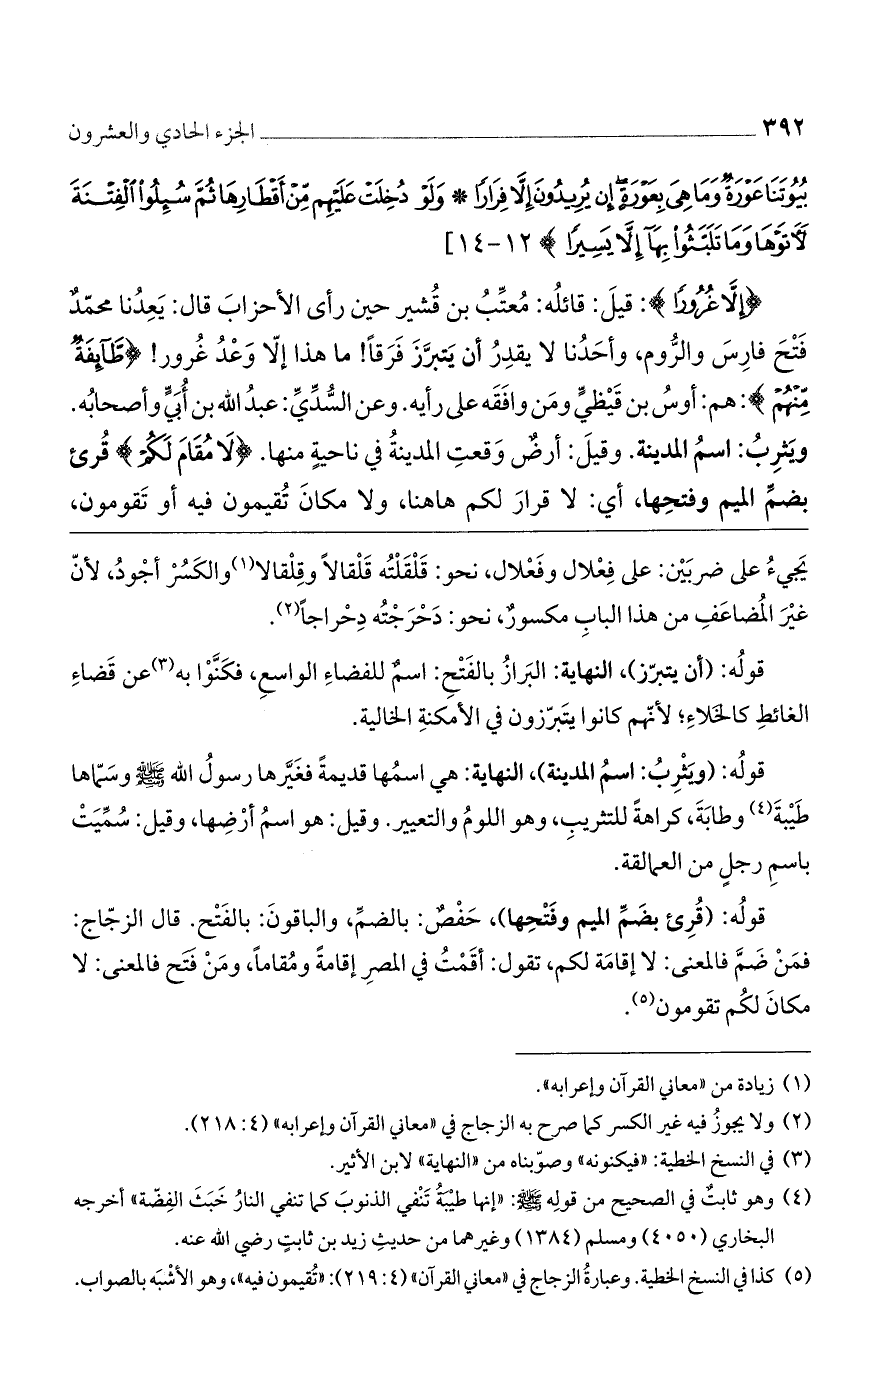 ٣٩٢ الجزء الحادي والعشرون
بُيُوتَنَا عَوْرَةٌ وَمَا هِيَ بِعَوْرَةٍ إِن يُرِيدُونَ إِلَّا فِرَارًا * وَلَوْ دُخِلَتْ عَلَيْهِم مِّنْ أَقْطَارِهَا ثُمَّ سُئِلُوا۟ ٱلْفِتْنَةَ
لَآتَوْهَا وَمَا تَلَبَّثُوا۟ بِهَآ إِلَّا يَسِيرًا ﴾ ١٢-١٤]
﴿إِلَّا غُرُورًا ﴾: قيلَ: قائلُه: مُعتِّبُ بن قُشير حين رأى الأحزابَ قال: يَعِدُنا محمّدٌ
فَتْحَ فارِسَ والرُّوم، وأحَدُنا لا يقدِرُ أن يَتبرَّزَ فَرَقاً! ما هذا إلّا وَعْدُ غُرور! ﴿طَّآئِفَةٌ
مِّنْهُمْ ﴾: هم: أوسُ بن قَيْظيٍّ ومَن وافَقَه على رأيه. وعن السُّدِّيِّ: عبدُ الله بن أُبَيٍّ وأصحابُه.
ويَثرِبُ: اسمُ المدينة. وقيلَ: أرضٌ وَقعتِ المدينةُ في ناحيةٍ منها. ﴿لَا مُقَامَ لَكُمْ ﴾ قُرئ
بضمِّ الميم وفتحِها، أي: لا قرارَ لكم هاهنا، ولا مكانَ تُقيمون فيه أو تَقومون،
يَجيءُ على ضربَيْن: على فِعْلال وفَعْلال، نحو: قَلْقَلْتُه قَلْقالاً وقِلْقالا(١) والكَسْرُ أجْودُ، لأنّ
غيْرَ المُضاعَفِ من هذا البابِ مكسورٌ، نحو: دَحْرَجْتُه دِحْراجاً(٢).
قولُه: (أن يتبرّز)، النهاية: البَرازُ بالفَتْحِ: اسمٌ للفضاءِ الواسعِ، فكَنَّوْا به(٣) عن قَضاءِ
الغائطِ كالخَلاءِ؛ لأنّهم كانوا يتَبرّزون في الأمكنةِ الخالية.
قولُه: (ويَثْرِبُ: اسمُ المدينة)، النهاية: هي اسمُها قديمةً فغَيَّرها رسولُ الله ﷺ وسَمّاها
طَيْبةَ(٤) وطابَةَ، كراهةً للتثريبِ، وهو اللومُ والتعيير. وقيل: هو اسمُ أرْضِها، وقيل: سُمِّيَتْ
باسمِ رجلٍ من العمالقة.
قولُه: (قُرِئ بضَمِّ الميم وفَتْحِها)، حَفْصٌ: بالضمِّ، والباقونَ: بالفَتْح. قال الزجّاج:
فمَنْ ضَمَّ فالمعنى: لا إقامَة لكم، تقول: أقَمْتُ في المصرِ إقامةً ومُقاماً، ومَنْ فَتَح فالمعنى: لا
مكانَ لكُم تقومون(٥).
(١) زيادة من «معاني القرآن وإعرابه».
(٢) ولا يجوزُ فيه غير الكسر كما صرح به الزجاج في «معاني القرآن وإعرابه» (٤: ٢١٨).
(٣) في النسخ الخطية: «فيكنونه» وصوّبناه من «النهاية» لابن الأثير.
(٤) وهو ثابتٌ في الصحيح من قولِه ﷺ: «إنها طيْبَةُ تَنْفي الذنوبَ كما تنفي النارُ خَبَثَ الفِضّة» أخرجه
البخاري (٤٠٥٠) ومسلم (١٣٨٤) وغيرهما من حديثِ زيد بن ثابتٍ رضي الله عنه.
(٥) كذا في النسخ الخطية. وعبارةُ الزجاج في «معاني القرآن» (٤: ٢١٩): «تُقيمون فيه»، وهو الأشْبَه بالصواب.